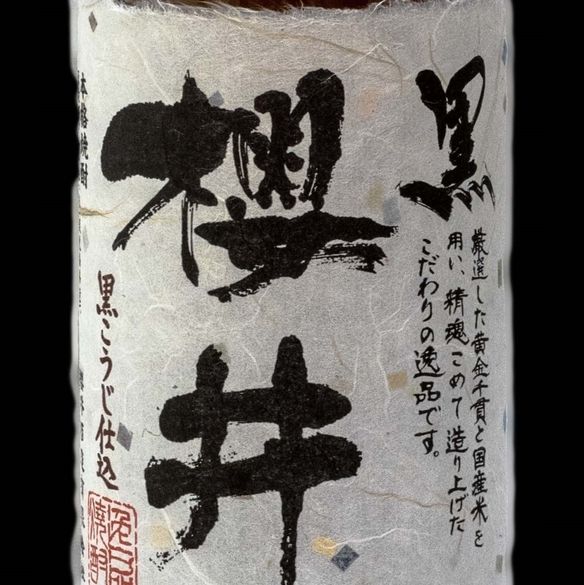 黒
櫻井
厳選した黄金千貫と国産米を
用い、精魂こめて造り上げた
こだわりの逸品です。
黒こうじ仕込
本格焼酎